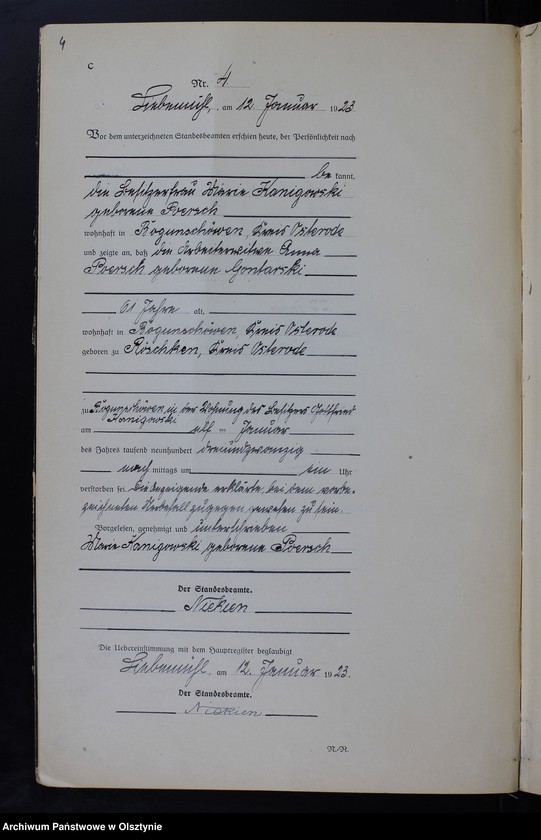 4
C
Nr. 4
Liebemühl, am 12. Januar 1923
Vor dem unterzeichneten Standesbeamten erschien heute, der Persönlichkeit nach
be kannt,
die Besitzerfrau Marie Kanigowski
geborene Poersch
wohnhaft in Bogunschöwen, Kreis Osterode
und zeigte an, daß die Arbeiterwitwe Anna
Poersch geborene Gontarski
61 Jahre alt,
wohnhaft in Bogunschöwen, Kreis Osterode
geboren zu Röschken, Kreis Osterode
zu Bogunschöwen, in der Wohnung des Besitzers Gottfried
Kanigowski
am elf ten Januar
des Jahres tausend neunhundert dreiundzwanzig
nach mittags um ein Uhr
verstorben sei. Die Anzeigende erklärte, bei dem vorbe-
zeichneten Sterbefall zugegen gewesen zu sein.
Vorgelesen, genehmigt und unterschrieben
Marie Kanigowski geborene Poersch
Der Standesbeamte.
Niekien
Die Uebereinstimmung mit dem Hauptregister beglaubigt
Liebemühl, am 12. Januar 1923.
Der Standesbeamte.
Niekien
N.-N.
Archiwum Państwowe w Olsztynie